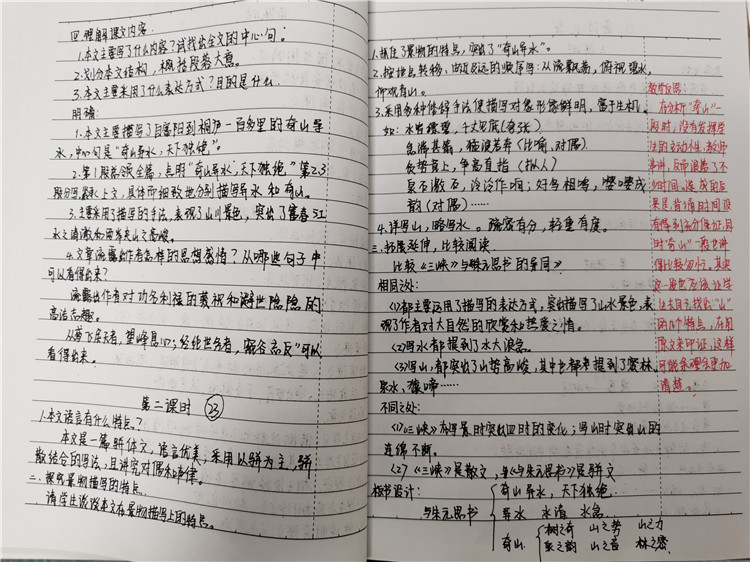 四.理解课文内容.
1.本文主要写了什么内容?试找出全文的中心句。
2.划分本文结构,概括段落大意。
3.本文主要采用了什么表达方式?目的是什么.
明确:
1.本文主要描写了自富阳到桐庐一百多里的奇山异
水,中心句是“奇山异水,天下独绝”。
2.第1段总领全篇,点明“奇山异水,天下独绝”第2.3
段分写承上文,具体而细致地分别描写异水和奇山。
3.主要采用了描写的手法,表现了山川景色,突出了富春江
水之清澈和两岸来山之高峻。
4.文章流露出作者怎样的思想感情?从哪些句子中
可以看得出来?
流露出作者对功名利禄的蔑视和避世隐隐的
高洁志趣。
从“鸢飞戾天者,望峰息心;经纶世务者,窥谷忘反”可以
看得出来。
第二课时 23
1.本文语言有什么特点?
本文是一篇骈体文,语言优美,采用以骈为主,骈
散结合的写法,且讲究对偶和声律。
二.探究景物描写的特点.
请学生谈谈本文在景物描写上的特点。
1.抓住了景物的特点,突出了“奇山异水”。
2.按地点转移、由近及远的顺序写:从流飘荡,俯视观水,
仰观看山。
3.采用多种修辞手法使描写对象形象鲜明,富于生机。
如:水皆缥碧,千丈见底(夸张)
急湍甚箭,猛浪若奔(比喻、对偶)
负势竞上,争高直指(拟人)
泉水激石,泠泠作响;好鸟相鸣,嘤嘤成
韵(对偶)……
4.详写山,略写水。疏密有分,轻重有度。
三.拓展延伸,比较阅读
比较《三峡》与《与朱元思书》的异同
相同之处:
(1)都主要运用了描写的表达方式,突出描写了山水景色,表
现了作者对大自然的欣赏和热爱之情。
(2)写水都提到了水大浪急。
(3)写山,都突出了山势高峻,其中也都提到了寒林、
泉水、猿啼……
不同之处:
(1)《三峡》在写景时突出四时的变化;写山时突出山的
连绵不断。
(2)《三峡》是散文,《与朱元思书》是骈文
板书设计:
奇山异水,天下独绝
与朱元思书 异水 水清 水急
奇山 树之奇 山之势 山之力
泉之韵 山之音 林之密
教学反思:
在分析“奇山”一
段时,没有发挥学
生的主动性,教师
多讲,反而浪费了不
少时间。造成的后
果是,背诵时间没
有得到充分保证,同
时“奇山”一段也讲
得比较匆忙。其实
这一段也应该让学
生自主去找出“山”
的几个特点,在用
原文来印证,这样
可能条理会更加
清楚。